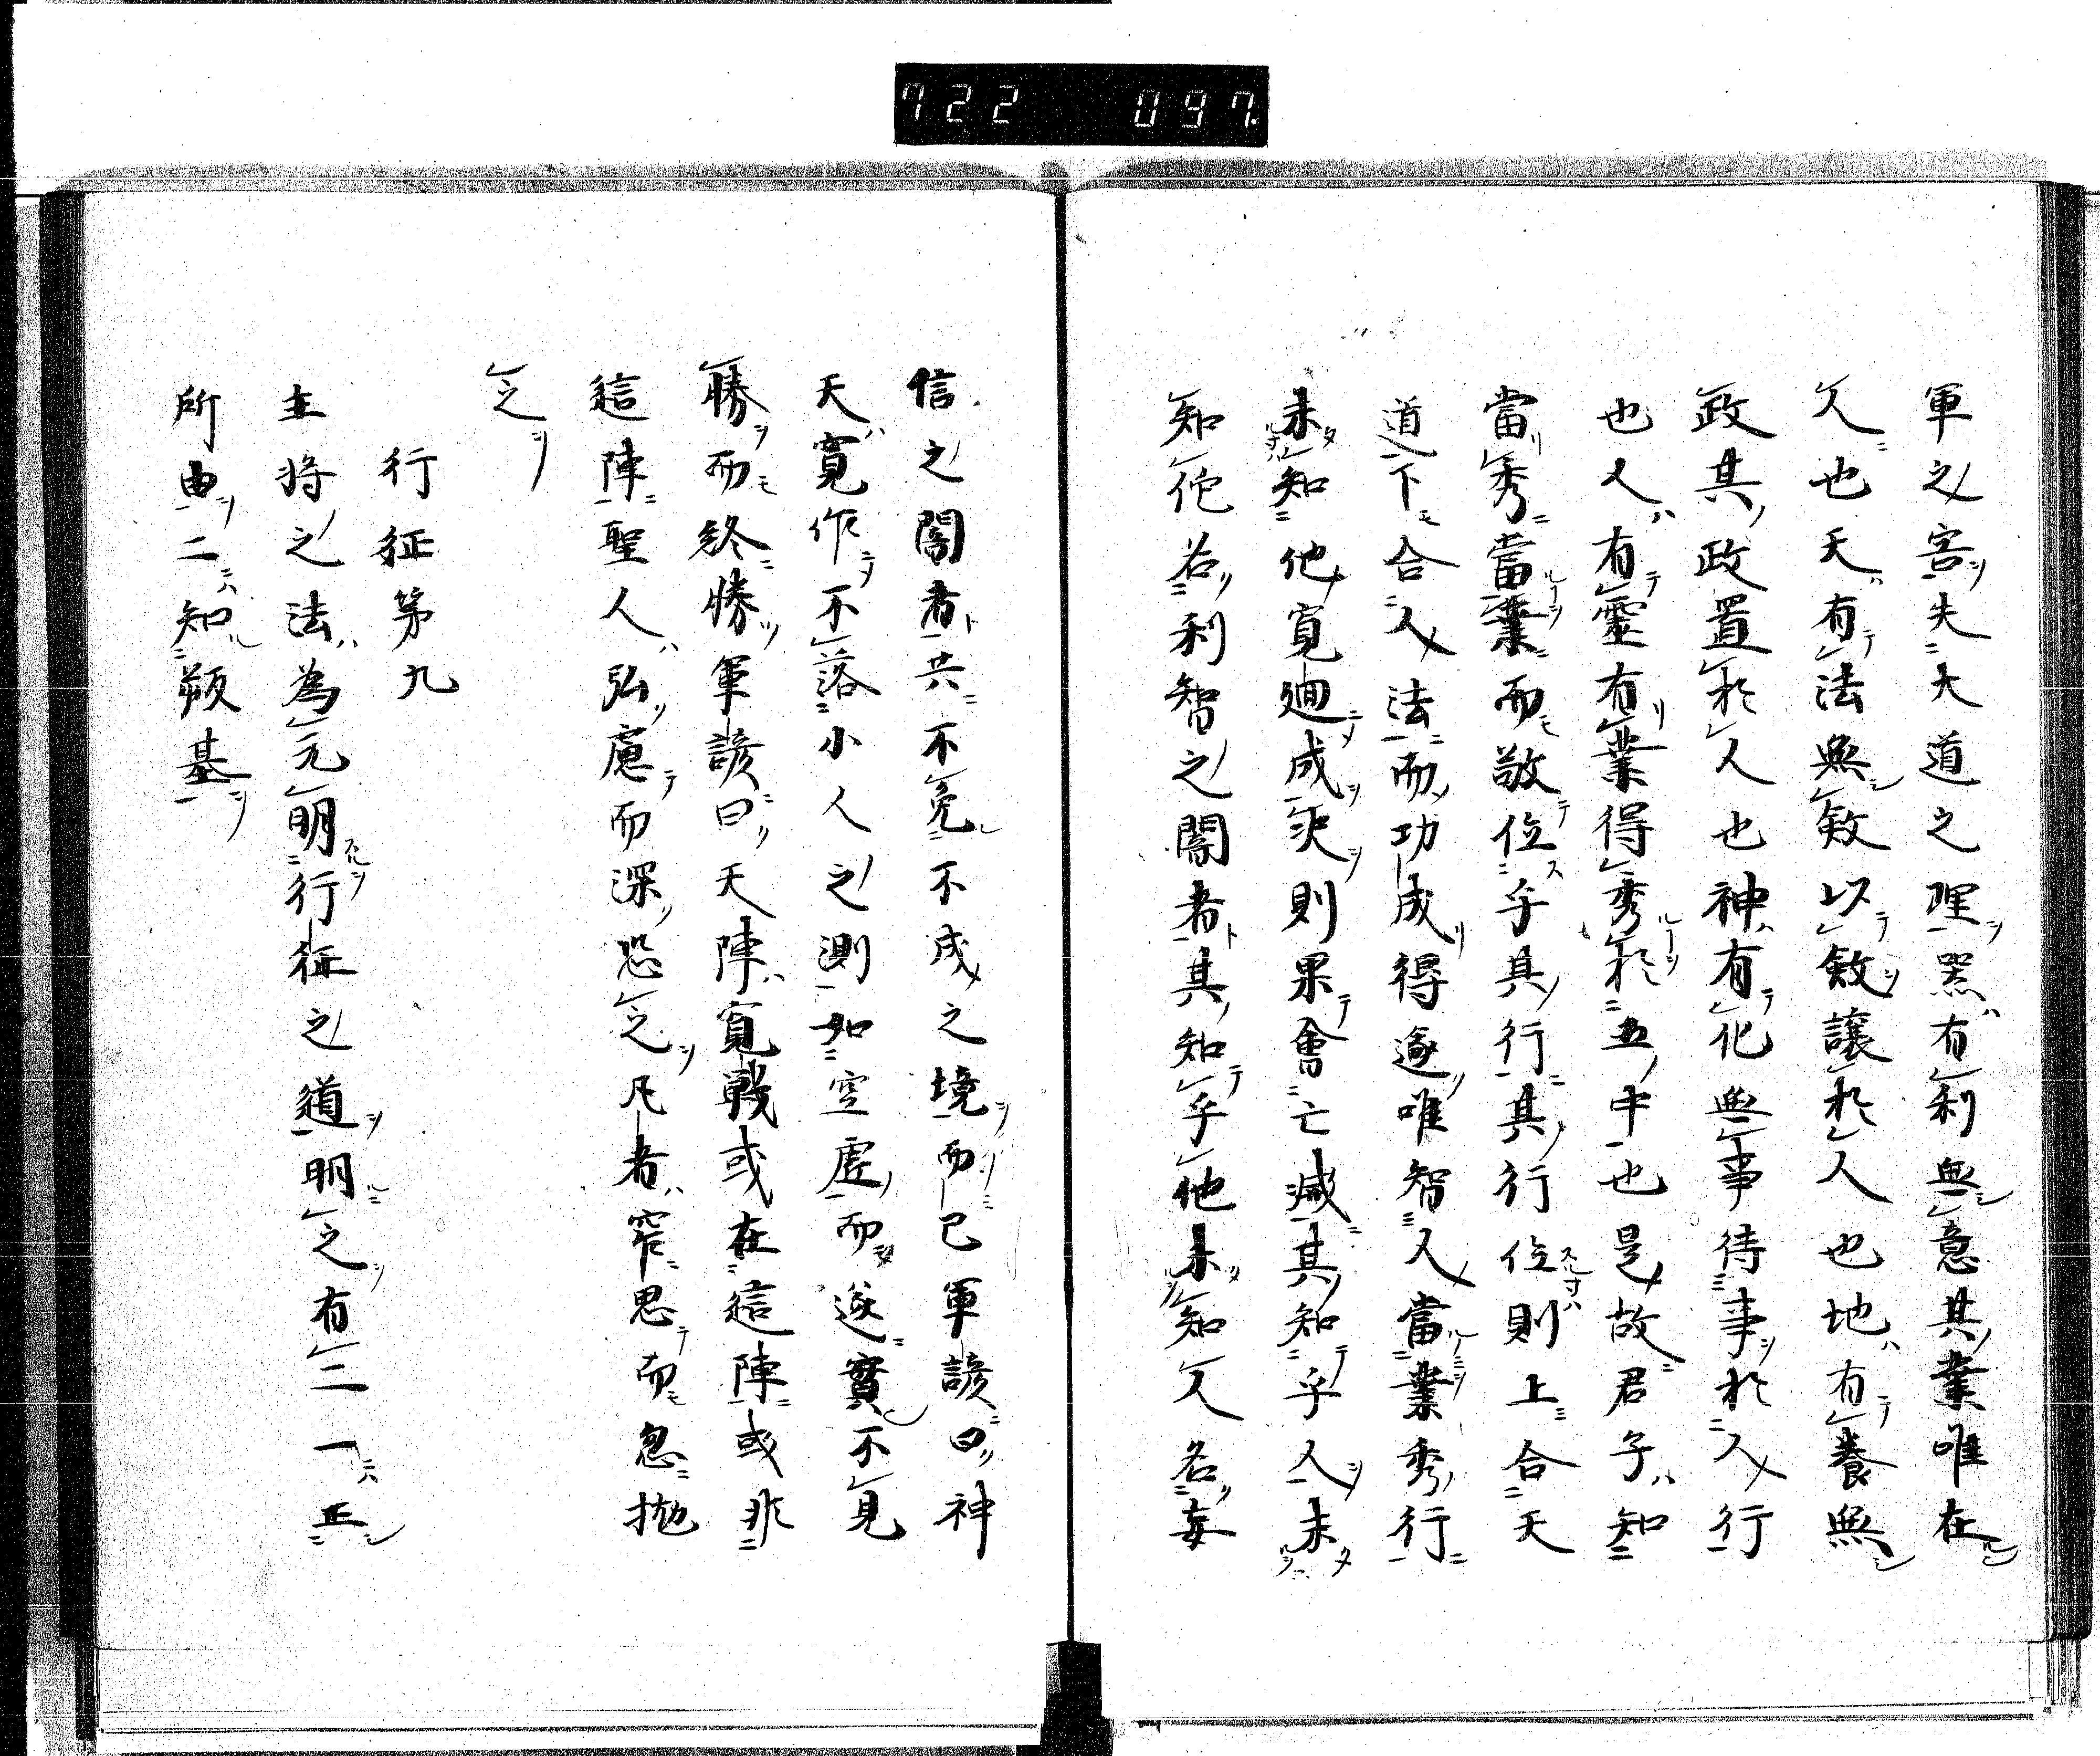 722 097.
軍之害失大道之理黑有利無意其業唯在
人也天有法無敘以敘讓於人也地有養無
政其政置於人也神有化無事待事於人行
也人有靈有業得秀於五中也是故君子知
當秀當業而敬位乎其行其行位則上合天
道下合人法而功成得遂唯智人當業秀行
未知他寬廻成決則果會亡滅其知乎人未
知佗名利智之闇者其知乎他未知人名妄
信之闇者共不免不成之境而已軍諺曰神
天寬作不落小人之測如空虛而遂實不見
勝而終勝軍諺曰天陣寬戰或在這陣或非
這陣聖人弘慮而深恐之凡者窄思而忽拋
之
行征第九
主將之法為元明行征之道明之有二一正
所由二知叛基